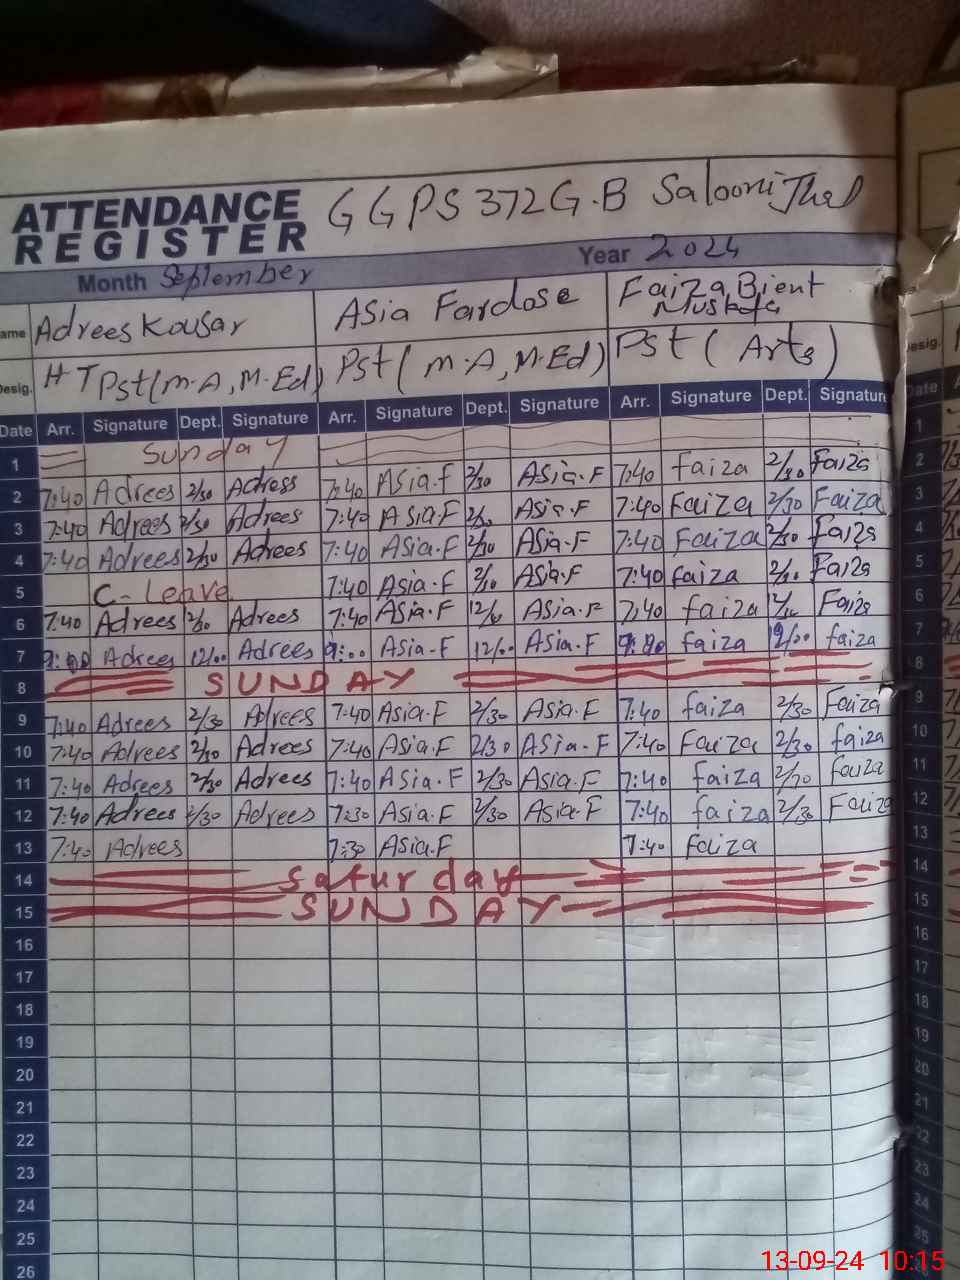 ATTENDANCE REGISTER GGPS 372 G.B Salooni Jhal
Month September Year 2024
ame Adrees Kousar Asia Fardose Faiza Bient Mustafa
Desig. HT Pst (M.A, M.Ed) Pst (M.A, M.Ed) Pst (Arts)
Date Arr. Signature Dept. Signature Arr. Signature Dept. Signature Arr. Signature Dept. Signatur
1 Sunday
2 7:40 Adrees 2/30 Adress 7:40 Asia.f 2/30 Asia.F 7:40 faiza 2/30 Faiza
3 7:40 Adrees 2/30 Adrees 7:40 Asia.F 2/30 Asia.F 7:40 Faiza 2/30 Faiza
4 7:40 Adrees 2/30 Adrees 7:40 Asia.F 2/30 Asia.F 7:40 Faiza 2/30 Faiza
5 C-Leave 7:40 Asia.F Asia.F 7:40 faiza Faiza
6 7:40 Adrees Adrees 7:40 Asia.F Asia.F 7:40 faiza Faiza
7 Adrees 12/00 Adrees 9:00 Asia-F 12/00 Asia.F faiza 12/00 faiza
8 SUNDAY
9 7:40 Adrees 2/30 Adrees 7:40 Asia.F 2/30 Asia.F 7:40 faiza 2/30 Faiza
10 7:40 Adrees 2/30 Adrees 7:40 Asia.F 2/30 Asia.F 7:40 Faiza 2/30 faiza
11 7:40 Adrees 2/30 Adrees 7:40 Asia.F 2/30 Asia.F 7:40 faiza 2/30 faiza
12 7:40 Adrees 2/30 Adrees 7:30 Asia.F 2/30 Asia.F 7:40 faiza 2/30 Faiza
13 7:40 Adrees 7:30 Asia.F 7:40 Faiza
14 Saturday
15 SUNDAY
16
17
18
19
20
21
22
23
24
25
26
esig.
Date
1
2
3
4
5
6
7
8
9
10
11
12
13
14
15
16
17
18
19
20
21
22
23
24
25
13-09-24 10:15